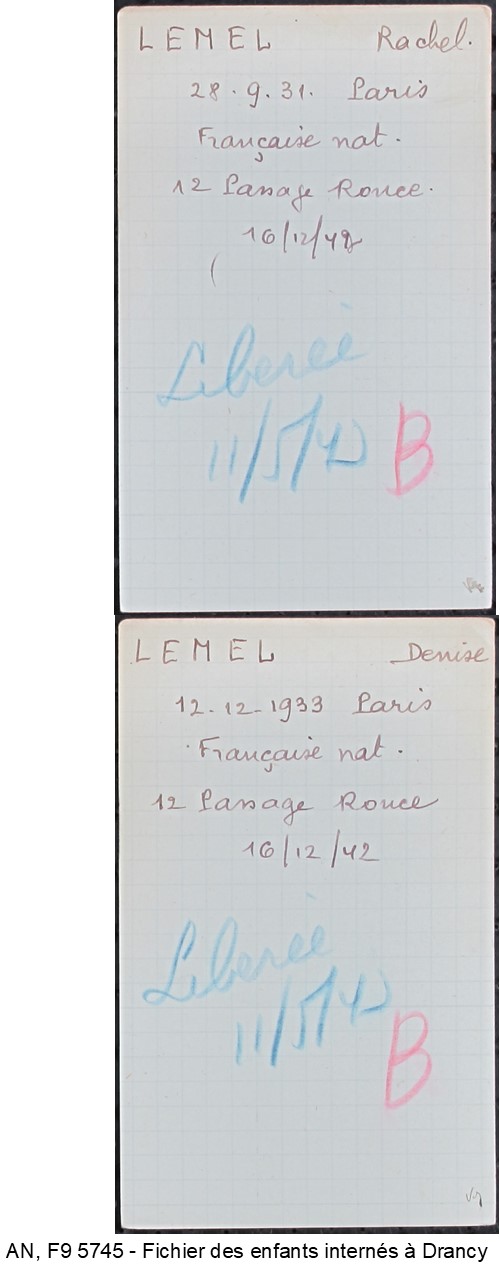 LEMEL Rachel.
28.9.31. Paris
Française nat.
12 Passage Ronce.
16/12/42
Liberée
11/5/43
B
LEMEL Denise
12-12-1933 Paris
Française nat.
12 Passage Ronce
16/12/42
Liberée
11/5/43
B
AN, F9 5745 - Fichier des enfants internés à Drancy